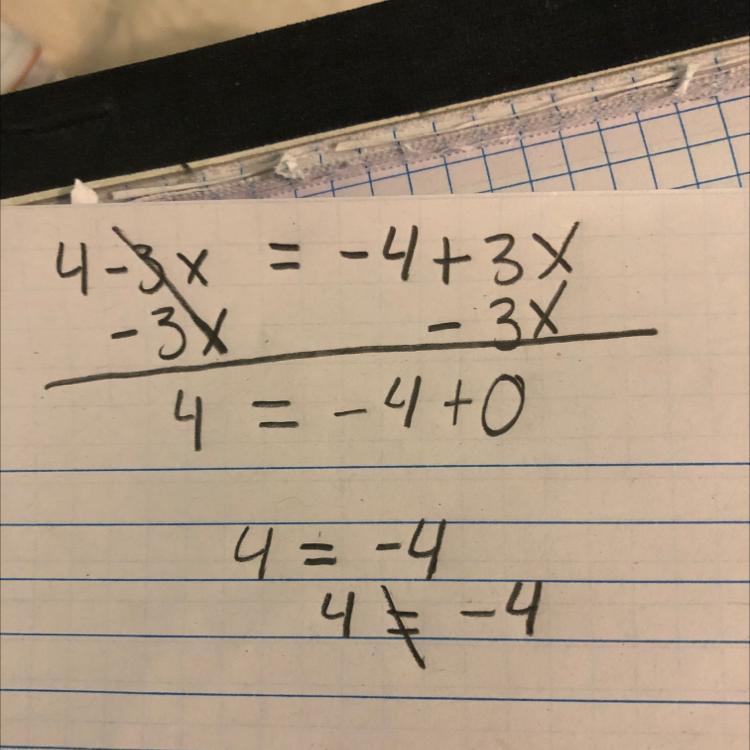 4 - 3x = -4 + 3x
- 3x - 3x
4 = -4 + 0
4 = -4
4 ≠ -4